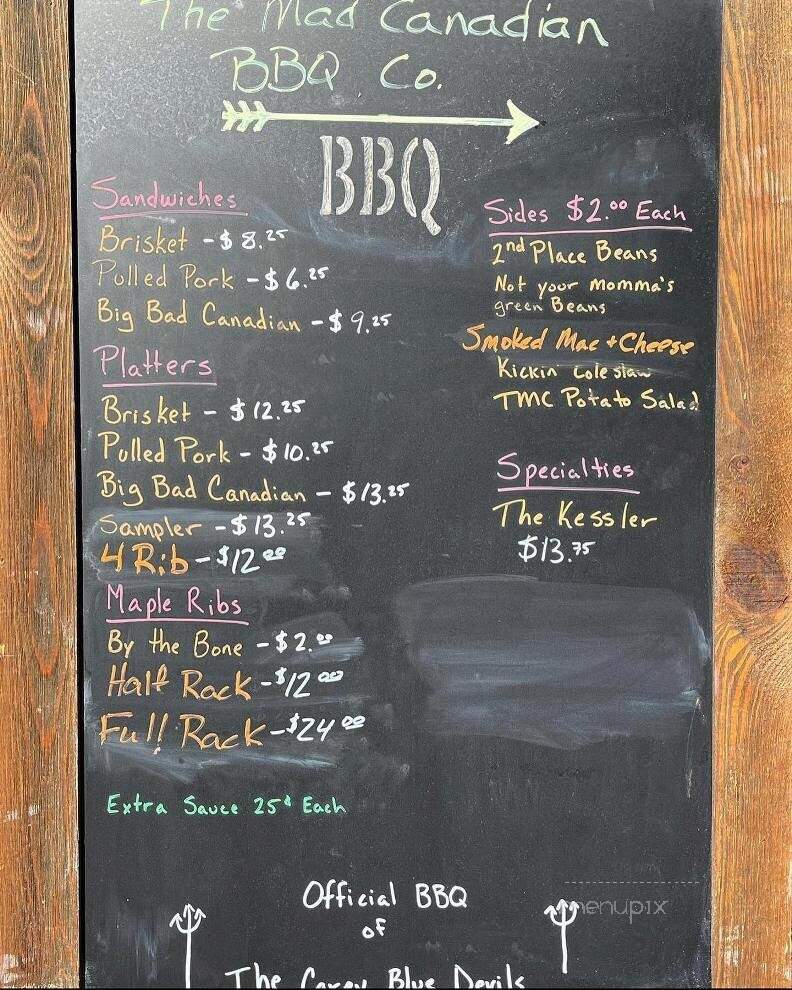 The Mad Canadian
BBQ Co.
BBQ
Sandwiches
Brisket - $8.25
Pulled Pork - $6.25
Big Bad Canadian - $9.25
Platters
Brisket - $12.25
Pulled Pork - $10.25
Big Bad Canadian - $13.25
Sampler - $13.25
4 Rib - $12.00
Maple Ribs
By the Bone - $2.00
Half Rack - $12.00
Full Rack - $24.00
Extra Sauce 25¢ Each
Sides $2.00 Each
2nd Place Beans
Not your momma's
green Beans
Smoked Mac + Cheese
Kickin Coleslaw
TMC Potato Salad
Specialties
The Kessler
$13.75
Official BBQ
of
The Carey Blue Devils
menupix